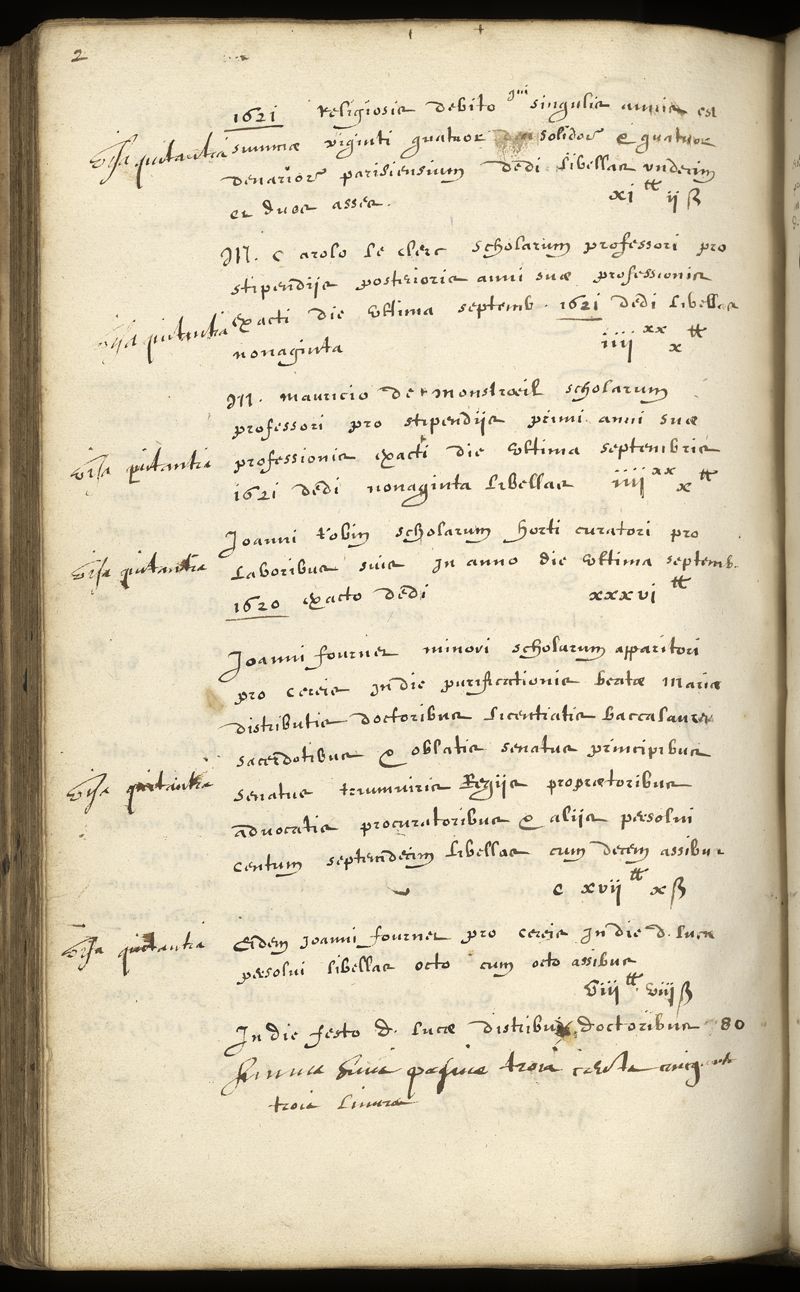 2
1621 Religiosis debito qui singulis annis est
Visa quitantia
summæ viginti quatuor solidor & quatuor
denarior parisiensium dedi libellas undecim
et duos asses. xi ₶ ij ß
M. Carolo le clerc scholarum professori pro
stipendijs posterioris anni suæ professionis
Visa quitantia
exacti die ultima septemb. 1621 dedi libellas
nonaginta iiij xx x ₶
M. mauricio de monstrœil scholarum
professori pro stipendijs primi anni suæ
Visa quitantia
professionis exacti die ultima septembris
1621 dedi nonaginta libellas iiij xx x ₶
Joanni robin scholarum horti curatori pro
Visa quitantia
laboribus suis in anno die ultima septemb.
1620 exacto dedi xxxvi ₶
Joanni fournet minori scholarum apparitori
pro cereis in die purificationis beatæ mariæ
distributis doctoribus licentiatis baccalaureis
sacerdotibus & oblatis senatus principibus
Visa quitantia
senatus triumviris Regijs proprætoribus
advocatis procuratoribus & alijs persolui
centum septemdecim libellas cum decem assibus
c xvij ₶ x ß
Visa quitantia
Eidem Joanni fournet pro cereis in die d. lucæ
persolui libellas octo cum octo assibus
viij ₶ viij ß
In die festo d. lucæ doctoribus 80
trois
trois